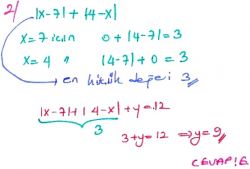 2) |x-7| + |4-x|
x=7 için 0 + |4-7| = 3
x=4 " |4-7| + 0 = 3
→ en küçük değeri 3
|x-7| + |4-x| + y = 12
3
3+y=12 ⇒ y=9
CEVAP: E